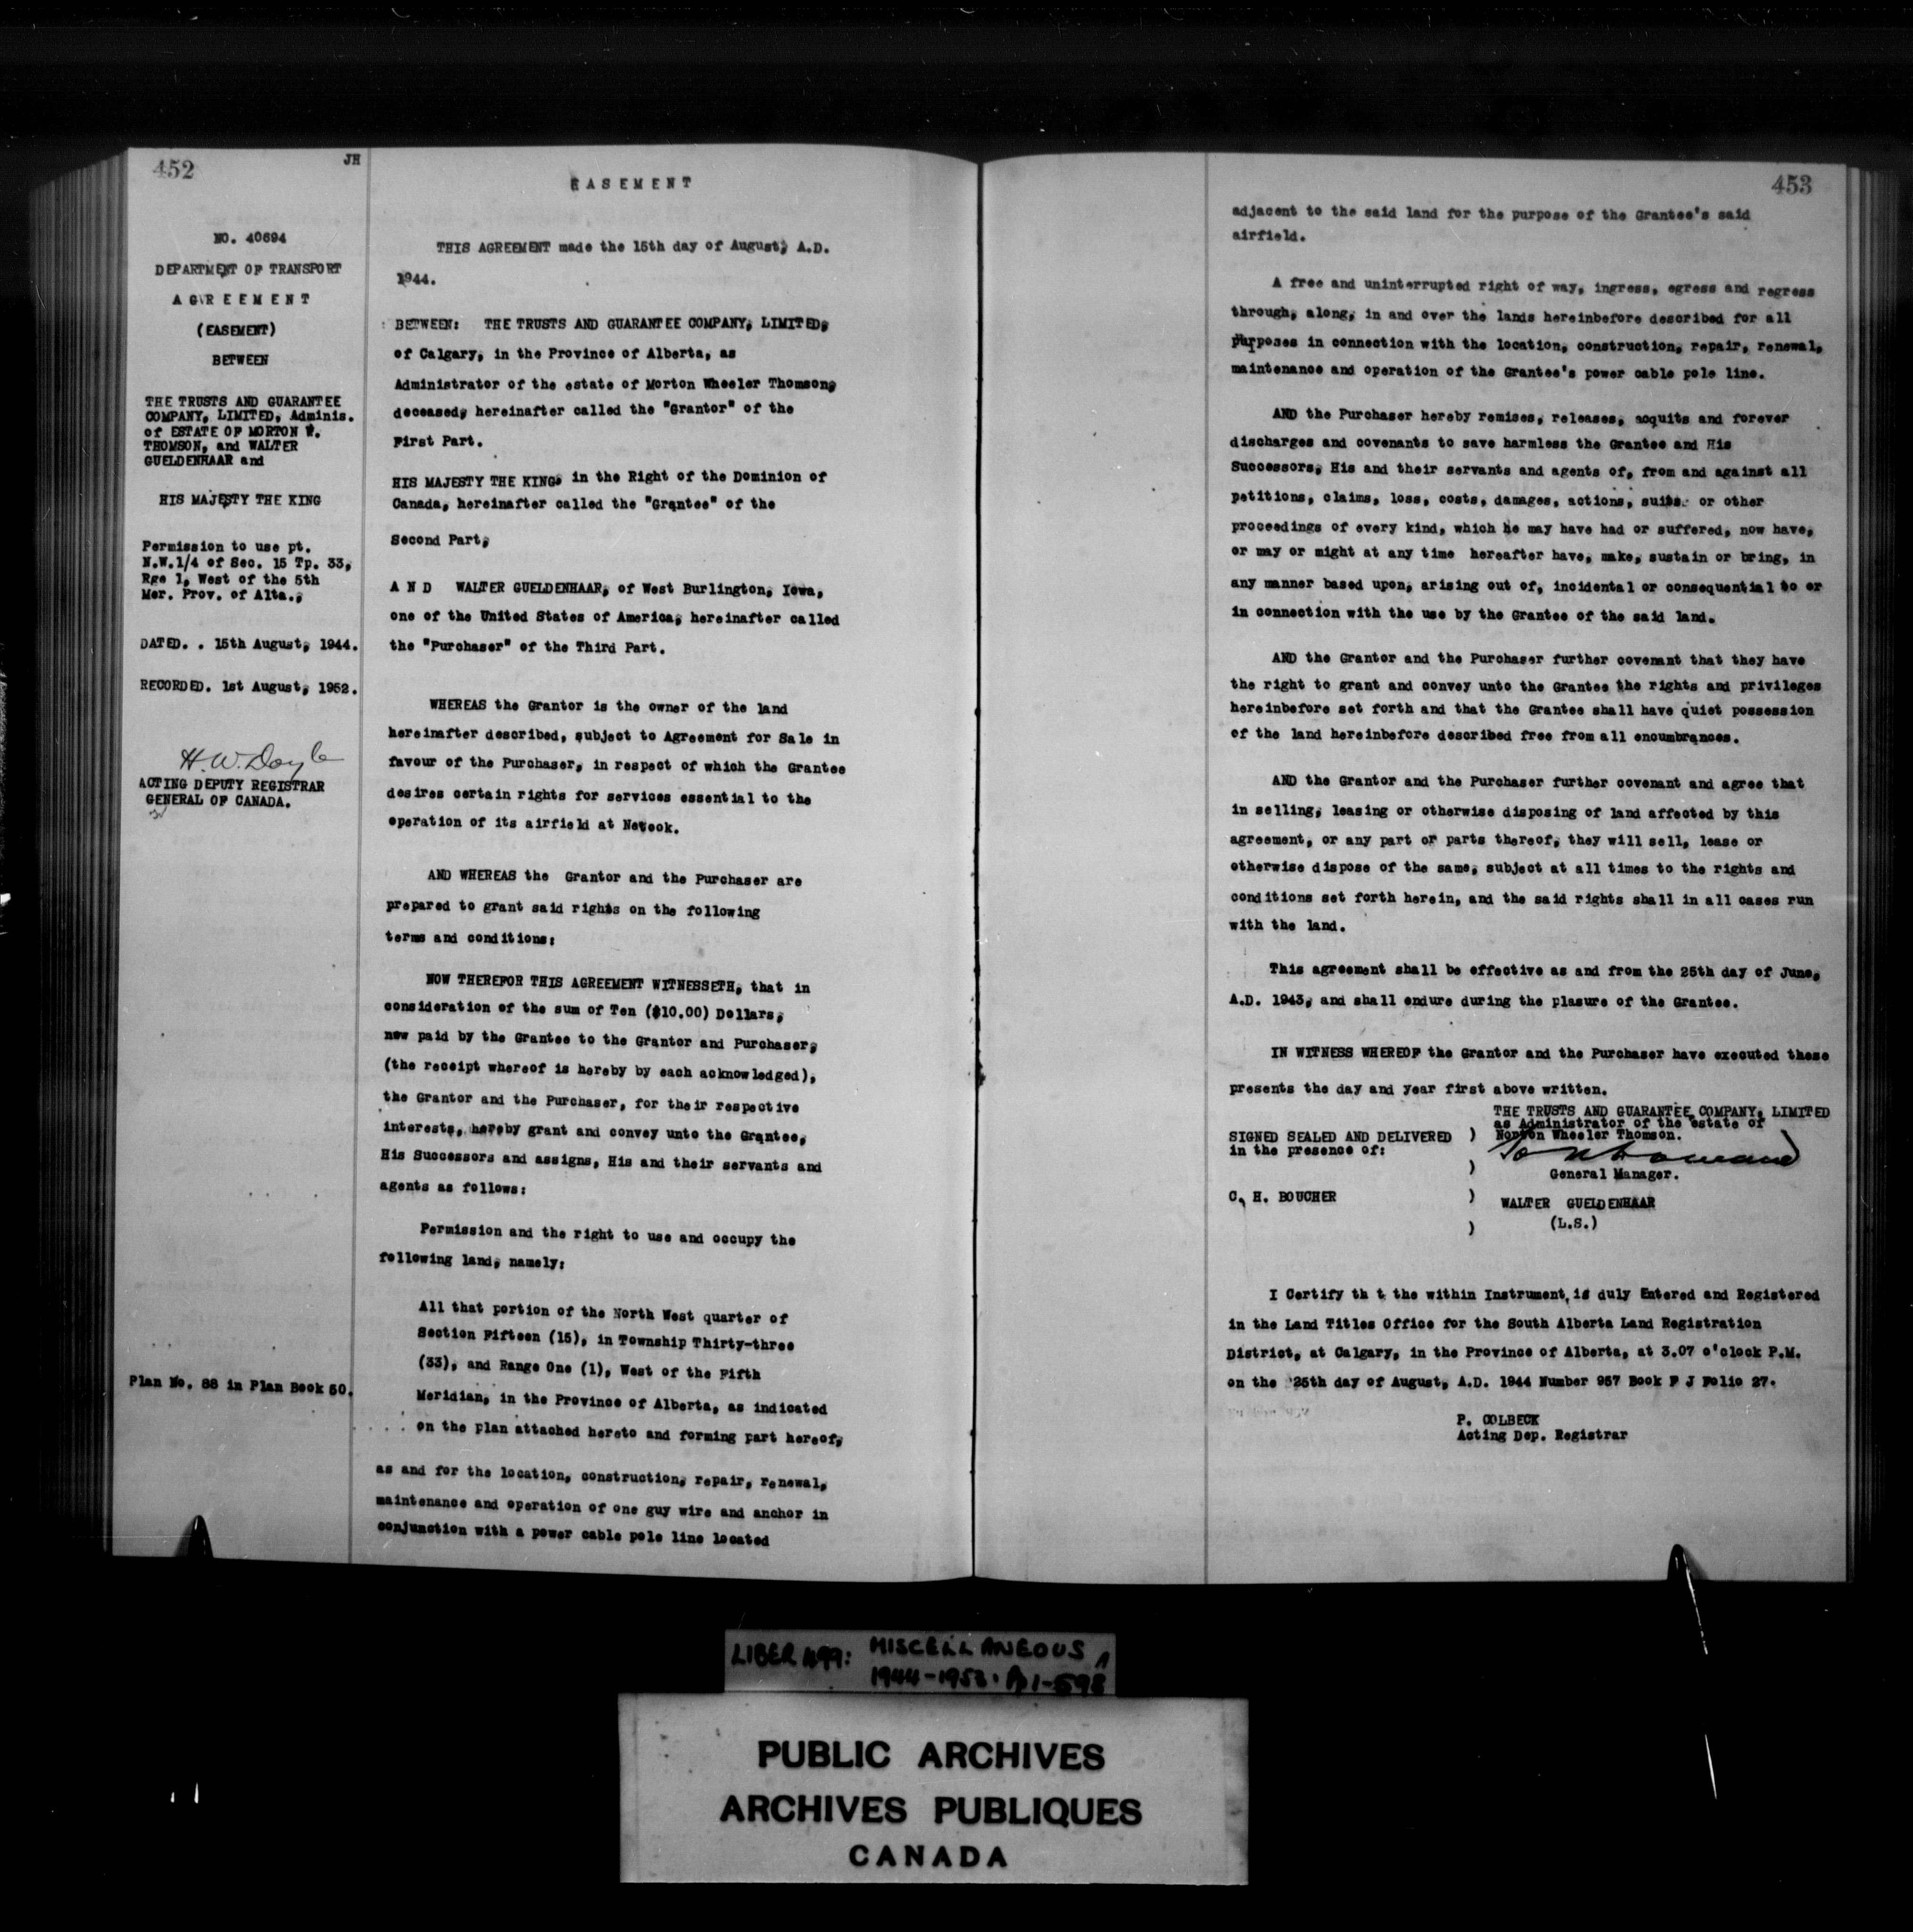 452
JH
NO. 40694
DEPARTMENT OF TRANSPORT
AGREEMENT
(EASEMENT)
BETWEEN
THE TRUSTS AND GUARANTEE
COMPANY, LIMITED, Adminis.
of ESTATE OF MORTON W.
THOMSON, and WALTER
GUELDENHAAR and
HIS MAJESTY THE KING
Permission to use pt.
N.W.1/4 of Sec. 15 Tp. 33,
Rge 1, West of the 5th
Mer. Prov. of Alta.,
DATED. . 15th August, 1944.
RECORDED. 1st August, 1952.
H.W. Doyle
ACTING DEPUTY REGISTRAR
GENERAL OF CANADA.
Plan No. 88 in Plan Book 50.
EASEMENT
THIS AGREEMENT made the 15th day of August, A.D.
1944.
BETWEEN: THE TRUSTS AND GUARANTEE COMPANY, LIMITED,
of Calgary, in the Province of Alberta, as
Administrator of the estate of Morton Wheeler Thomson,
deceased, hereinafter called the "Grantor" of the
First Part.
HIS MAJESTY THE KING, in the Right of the Dominion of
Canada, hereinafter called the "Grantee" of the
Second Part,
A N D WALTER GUELDENHAAR, of West Burlington, Iowa,
one of the United States of America, hereinafter called
the "Purchaser" of the Third Part.
WHEREAS the Grantor is the owner of the land
hereinafter described, subject to Agreement for Sale in
favour of the Purchaser, in respect of which the Grantee
desires certain rights for services essential to the
operation of its airfield at Neteok.
AND WHEREAS the Grantor and the Purchaser are
prepared to grant said rights on the following
terms and conditions:
NOW THEREFOR THIS AGREEMENT WITNESSETH, that in
consideration of the sum of Ten ($10.00) Dollars,
now paid by the Grantee to the Grantor and Purchaser,
(the receipt whereof is hereby by each acknowledged),
the Grantor and the Purchaser, for their respective
interests, hereby grant and convey unto the Grantee,
His Successors and assigns, His and their servants and
agents as follows:
Permission and the right to use and occupy the
following land, namely:
All that portion of the North West quarter of
Section Fifteen (15), in Township Thirty-three
(33), and Range One (1), West of the Fifth
Meridian, in the Province of Alberta, as indicated
. . . . on the plan attached hereto and forming part hereof,
as and for the location, construction, repair, renewal,
maintenance and operation of one guy wire and anchor in
conjunction with a power cable pole line located
453
adjacent to the said land for the purpose of the Grantee's said
airfield.
A free and uninterrupted right of way, ingress, egress and regress
through, along, in and over the lands hereinbefore described for all
purposes in connection with the location, construction, repair, renewal,
maintenance and operation of the Grantee's power cable pole line.
AND the Purchaser hereby remises, releases, acquits and forever
discharges and covenants to save harmless the Grantee and His
Successors, His and their servants and agents of, from and against all
petitions, claims, loss, costs, damages, actions, suits. or other
proceedings of every kind, which he may have had or suffered, now have,
or may or might at any time hereafter have, make, sustain or bring, in
any manner based upon, arising out of, incidental or consequential to or
in connection with the use by the Grantee of the said land.
AND the Grantor and the Purchaser further covenant that they have
the right to grant and convey unto the Grantee the rights and privileges
hereinbefore set forth and that the Grantee shall have quiet possession
of the land hereinbefore described free from all encumbrances.
AND the Grantor and the Purchaser further covenant and agree that
in selling, leasing or otherwise disposing of land affected by this
agreement, or any part or parts thereof, they will sell, lease or
otherwise dispose of the same, subject at all times to the rights and
conditions set forth herein, and the said rights shall in all cases run
with the land.
This agreement shall be effective as and from the 25th day of June,
A.D. 1943, and shall endure during the plasure of the Grantee.
IN WITNESS WHEREOF the Grantor and the Purchaser have executed these
presents the day and year first above written.
THE TRUSTS AND GUARANTEE COMPANY, LIMITED
as Administrator of the estate of
SIGNED SEALED AND DELIVERED ) Morton Wheeler Thomson.
in the presence of:
) General Manager.
C. H. BOUCHER ) WALTER GUELDENHAAR
) (L.S.)
I Certify th t the within Instrument is duly Entered and Registered
in the Land Titles Office for the South Alberta Land Registration
District, at Calgary, in the Province of Alberta, at 3.07 o'clock P.M.
on the 25th day of August, A.D. 1944 Number 957 Book F J Folio 27.
P. COLBECK
Acting Dep. Registrar
LIBER 499: MISCELLANEOUS
1944-1953. Pp 1-598
PUBLIC ARCHIVES
ARCHIVES PUBLIQUES
CANADA